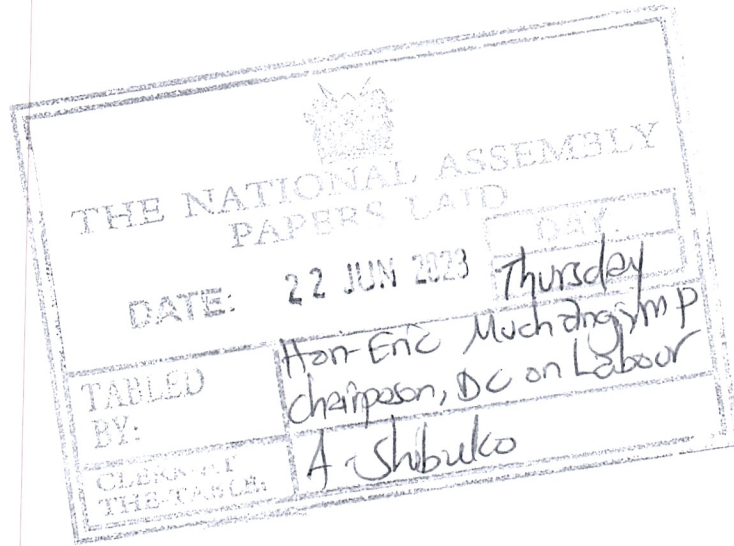 THE NATIONAL ASSEMBLY
PAPERS LAID
DAY.
DATE: 22 JUN 2023 Thursday
TABLED BY:
Hon-Eric Muchangi MP
Chairperson, DC on Labour
CLERK AT THE-TABLE:
A-Shibuko